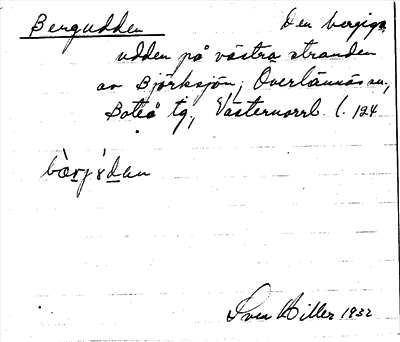 Bergudden Den bergiga
udden på västra stranden
av Björksjön, Överlännäs sn,
Boteå tg, Västernorrl. l. 124
Sven Hiller 1932